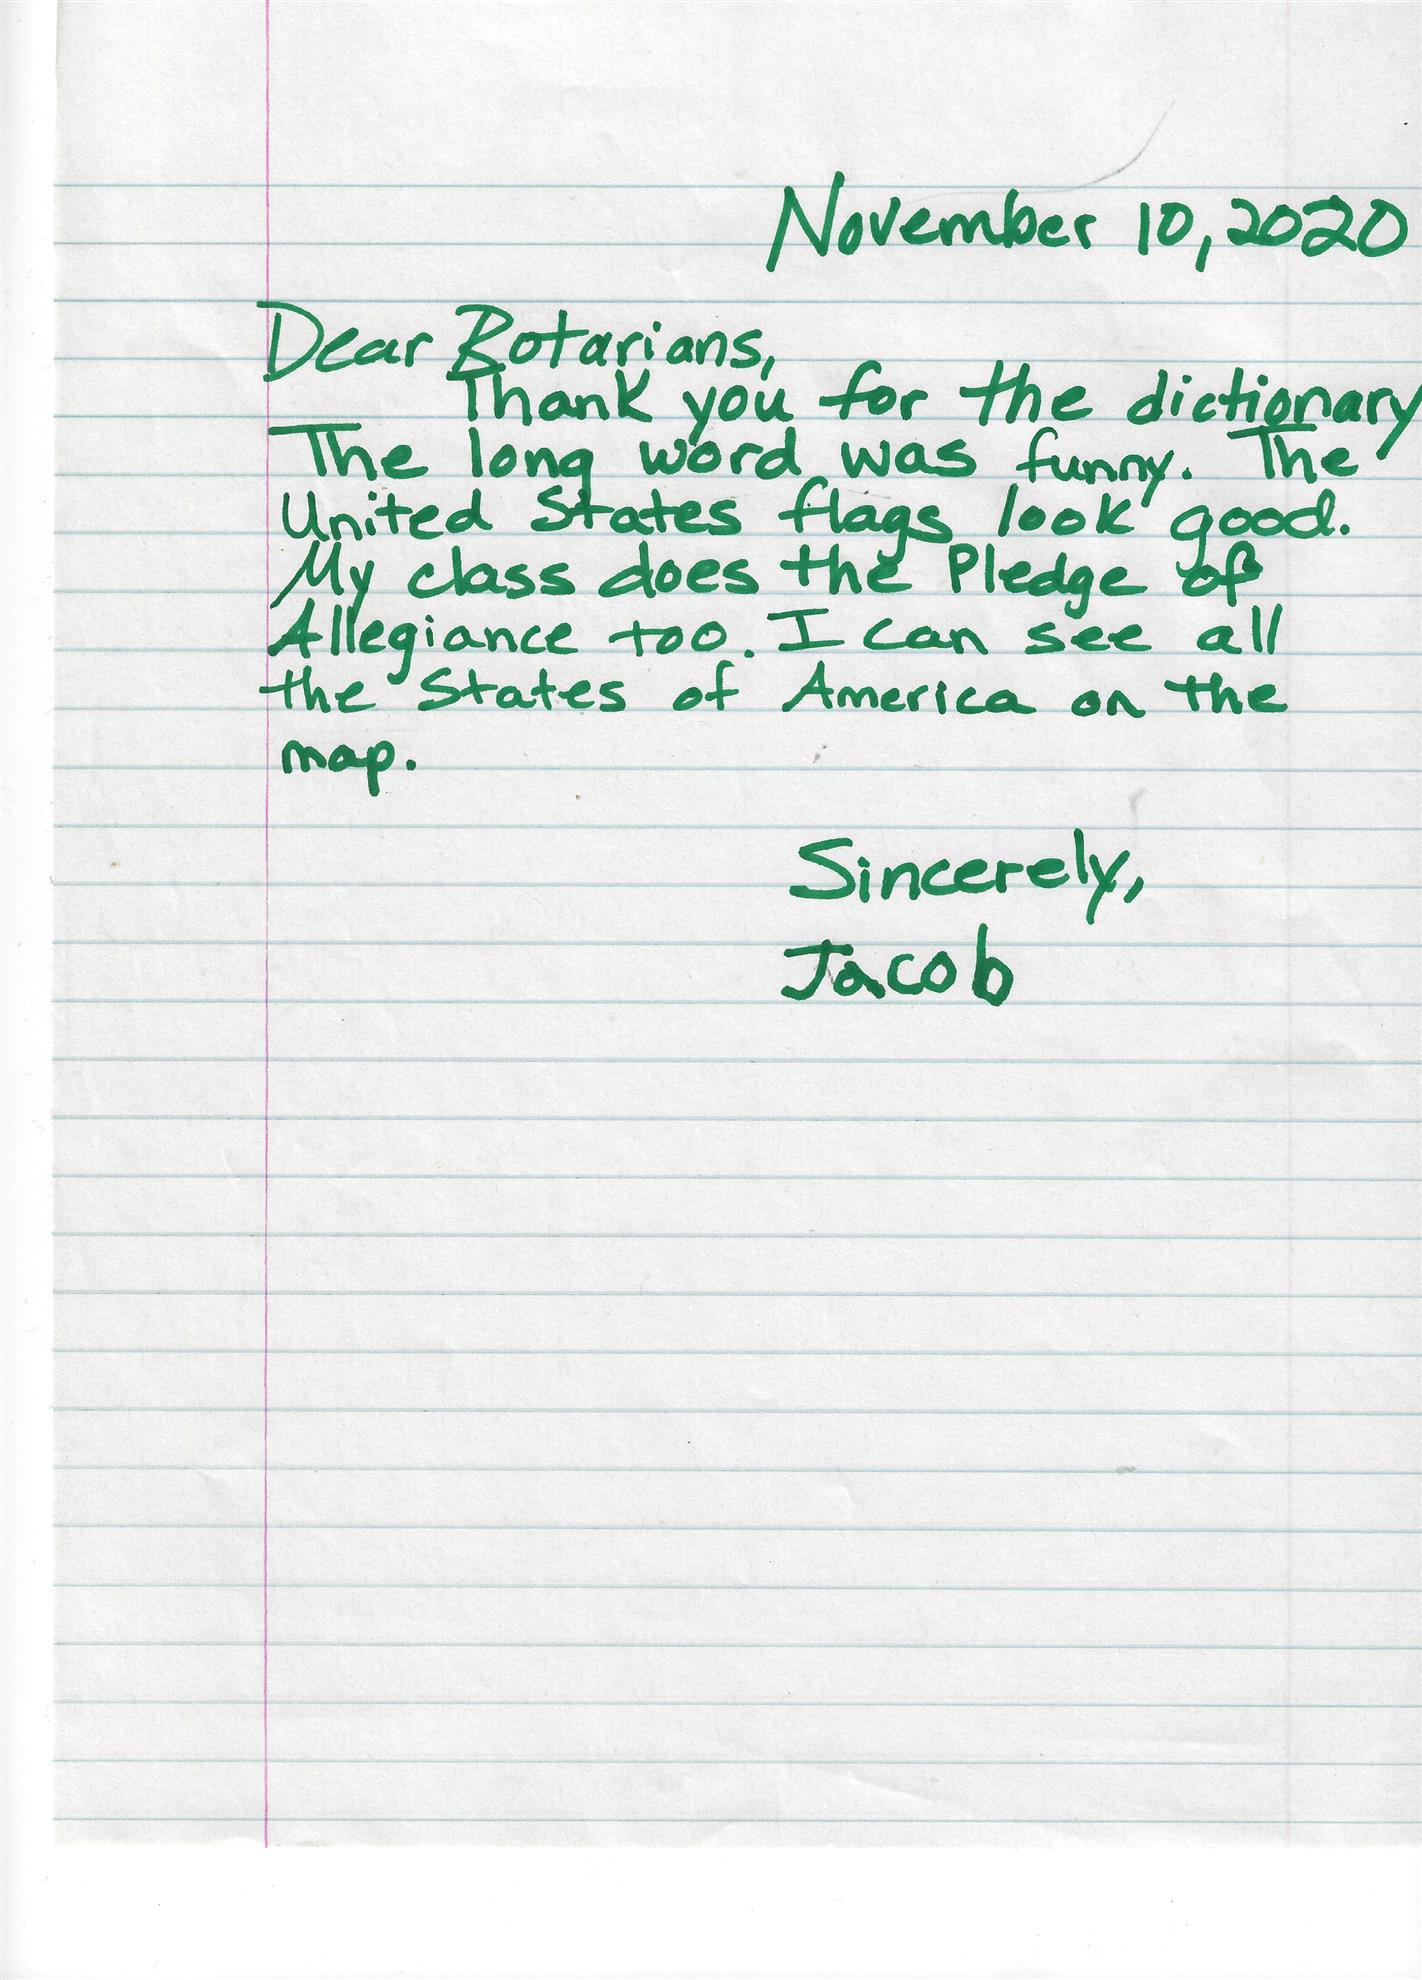 November 10, 2020
Dear Rotarians,
Thank you for the dictionary
The long word was funny. The
United States flags look good.
My class does the Pledge of
Allegiance too. I can see all
the States of America on the
map.
Sincerely,
Jacob